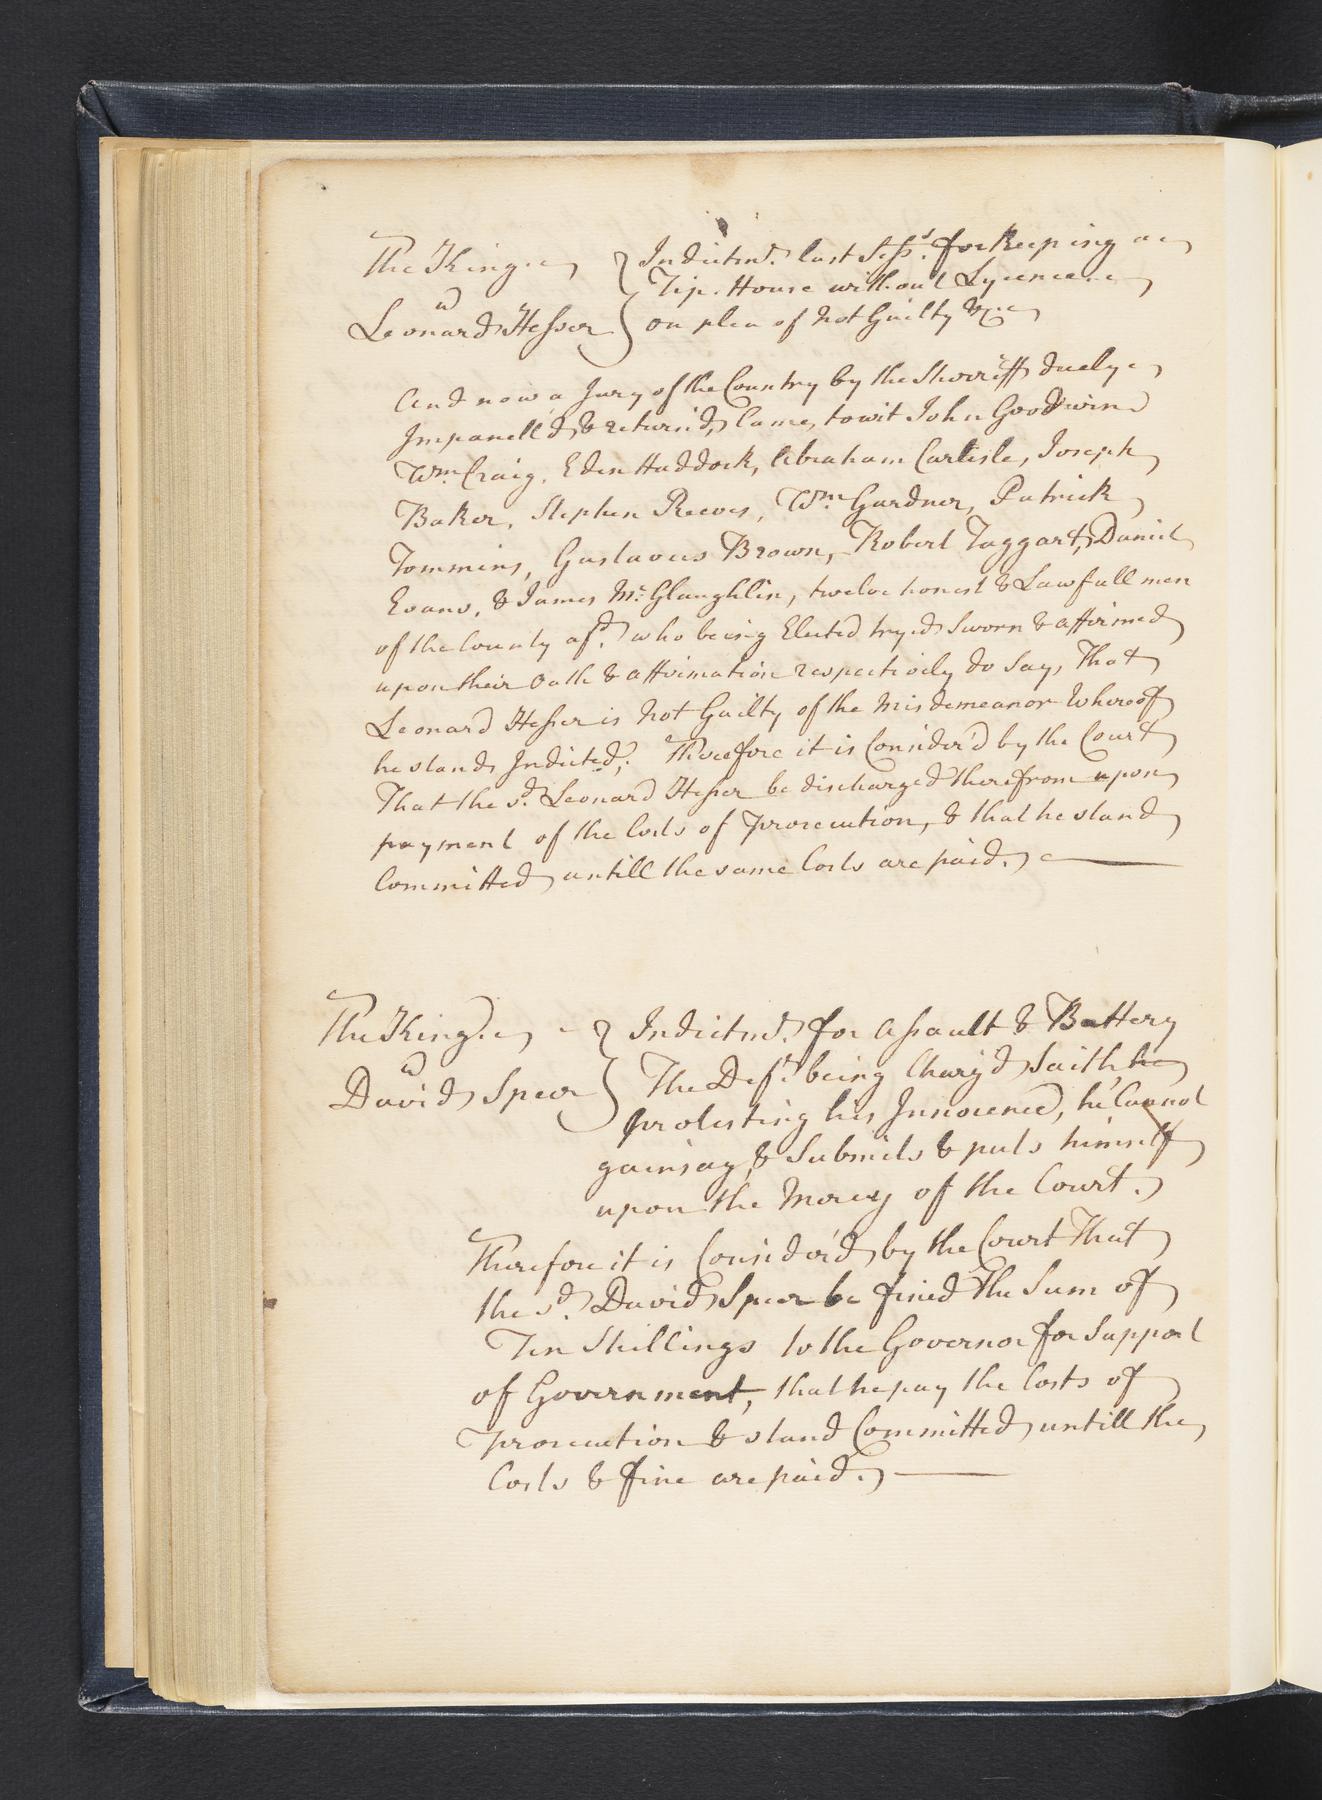 The King
v
Leonard Hesser
Indictmt. last Sesss. for Keeping a
Tip. House without Lycence.
on plea of Not Guilty &c.
And now a Jury of the Country by the Sherriff duely
Impanell'd & return'd, Came, to wit John Goodwin
Wm. Craig, Eden Haddock, Abraham Carlisle, Joseph
Baker, Stephen Reeves, Wm. Gardner, Patrick
Tommins, Gustavus Brown, Robert Taggart, Daniel
Evans, & James Mc. Glaughlin, twelve honest & Lawfull men
of the County afd. who being Elected tryed Sworn & affirmed
upon their Oath & affirmation respectively do Say, That
Leonard Hesser is Not Guilty of the Misdemeanor Whereof
he stands Indicted; Therefore it is Consider'd by the Court
That the sd. Leonard Hesser be discharged therefrom upon
payment of the Costs of Prosecution, & that he stand
Committed untill the same Costs are paid.
The King.
v
David Spear
Indictmt. for Assault & Battery
The Deft. being Charg'd Saith he
protesting his Innocence, he Cannot
gainsay, & Submits & puts himself
upon the Mercy of the Court.
Therefore it is Consider'd by the Court That
the sd. David Spear be fined the Sum of
Ten Shillings to the Governor for Support
of Government, that he pay the Costs of
Prosecution & stand Committed untill the
Costs & fine are paid.